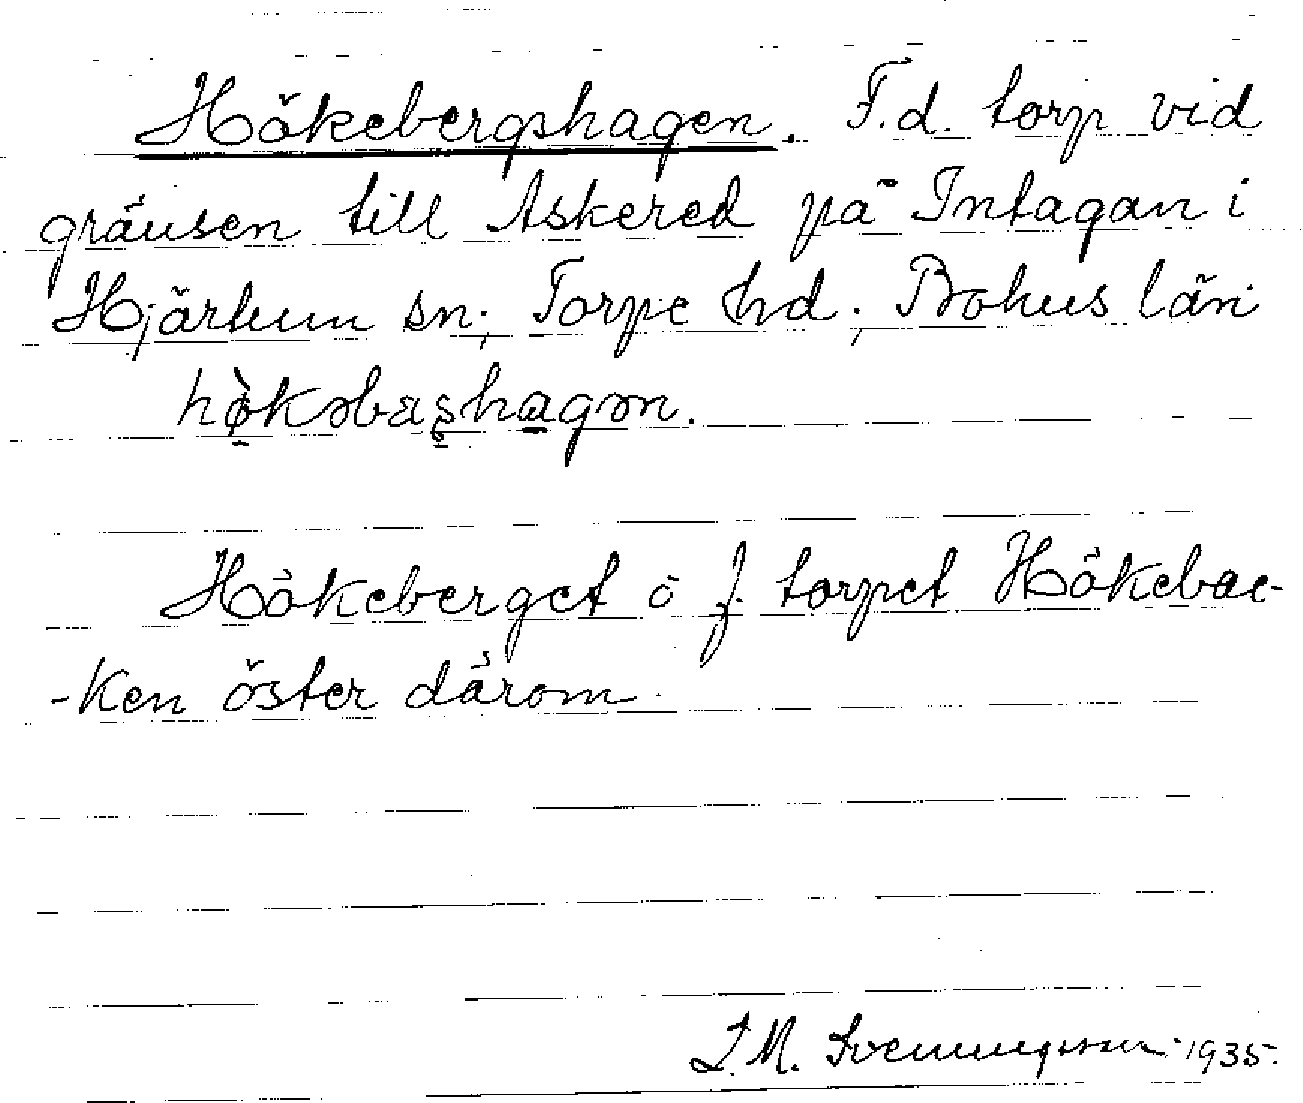 Hökebergshagen. F.d. torp vid
gränsen till Askered på Intagan i
Hjärtum sn; Torpe hd; Bohus län
Hökeberget ö f. torpet Hökebac-
-ken öster därom
J.M. Svenungsson 1935.